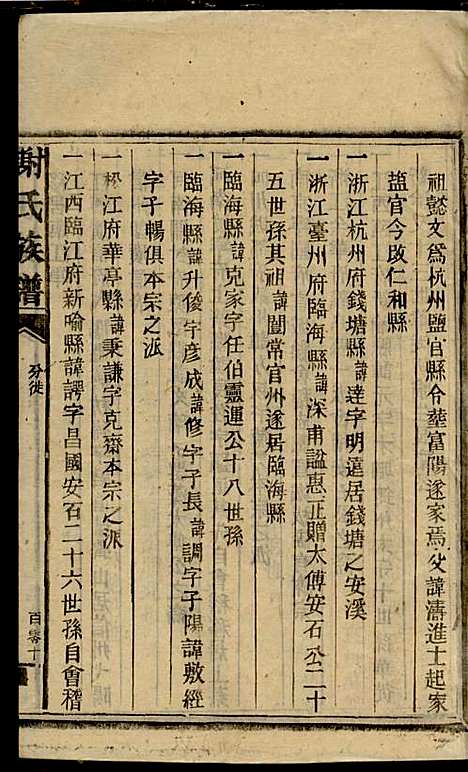 祖懿文爲杭州鹽官縣令塟富陽遂家焉父諱濤進士起家
鹽官今改仁和縣
一浙江杭州府錢塘縣諱達字明遠居錢塘之安溪
一浙江臺州府臨海縣諱深甫諡惠正贈太傅安石公二十
五世孫其祖諱闓常官州遂居臨海縣
一臨海縣諱克家字任伯靈運公十八世孫
一臨海縣諱升俊字彦成諱修字子長諱調字子陽諱敷經
字子暢俱本宗之派
一松江府華亭縣諱秉謙字克齋本宗之派
一江西臨江府新喻縣諱諤字昌國安石二十六世孫自會稽
謝氏族譜
分徙
百零十